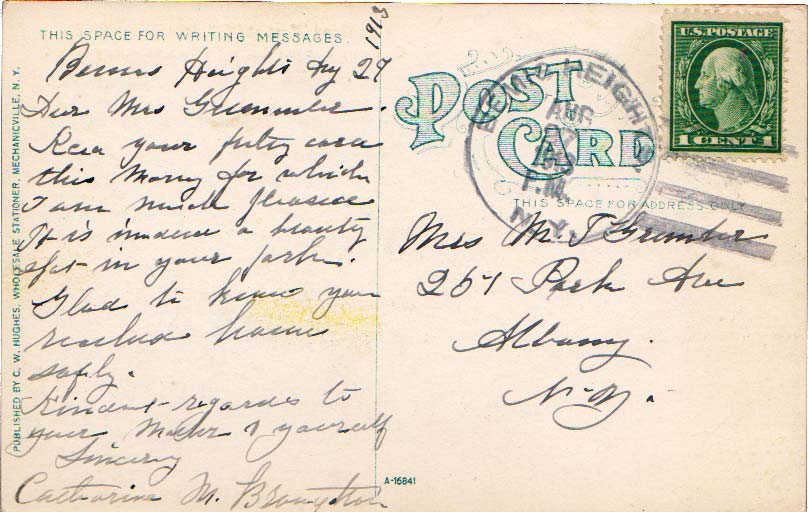 THIS SPACE FOR WRITING MESSAGES.
1913
Bemis Heights Aug 27
Dear Mrs Grumbler.
Recd your pretty card
this Morng for which
I am much pleased
It is indeed a beauty
spot in your park.
Glad to know you
reached home
safely.
Kindest regardes to
your Mother & yourself
Sincerly
Catharine M. Broughton
PUBLISHED BY C. W. HUGHES, WHOLESALE STATIONER, MECHANICVILLE, N. Y.
POST
CARD
BEMIS HEIGHTS
AUG
27
P.M.
N.Y.
U.S. POSTAGE
1 CENT 1
THIS SPACE FOR ADDRESS ONLY
Mrs M T
251 Park Ave
Albany.
N-Y.
A-16841